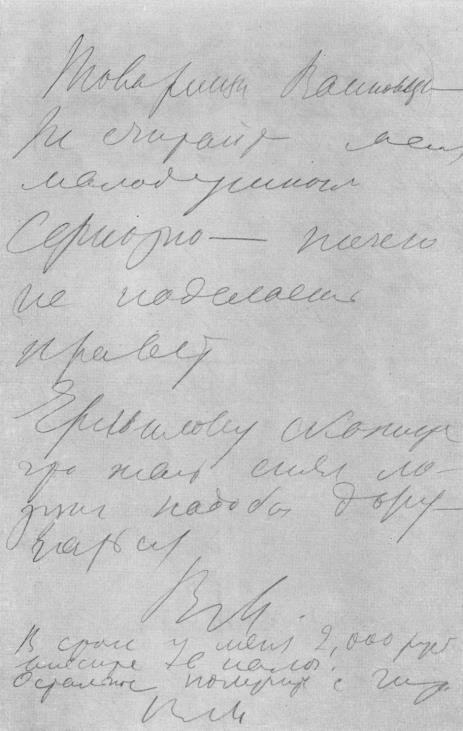 Товарищи Вапповцы –
не считайте меня
малодушным
Сериозно — ничего
не поделаешь
привет
Ермилову скажите
что жаль снял ло-
зунг надо бы дору-
гаться
В.М.
В столе у меня 2,000 руб
внесите в налог.
Остальное получите с Гиза
ВМ